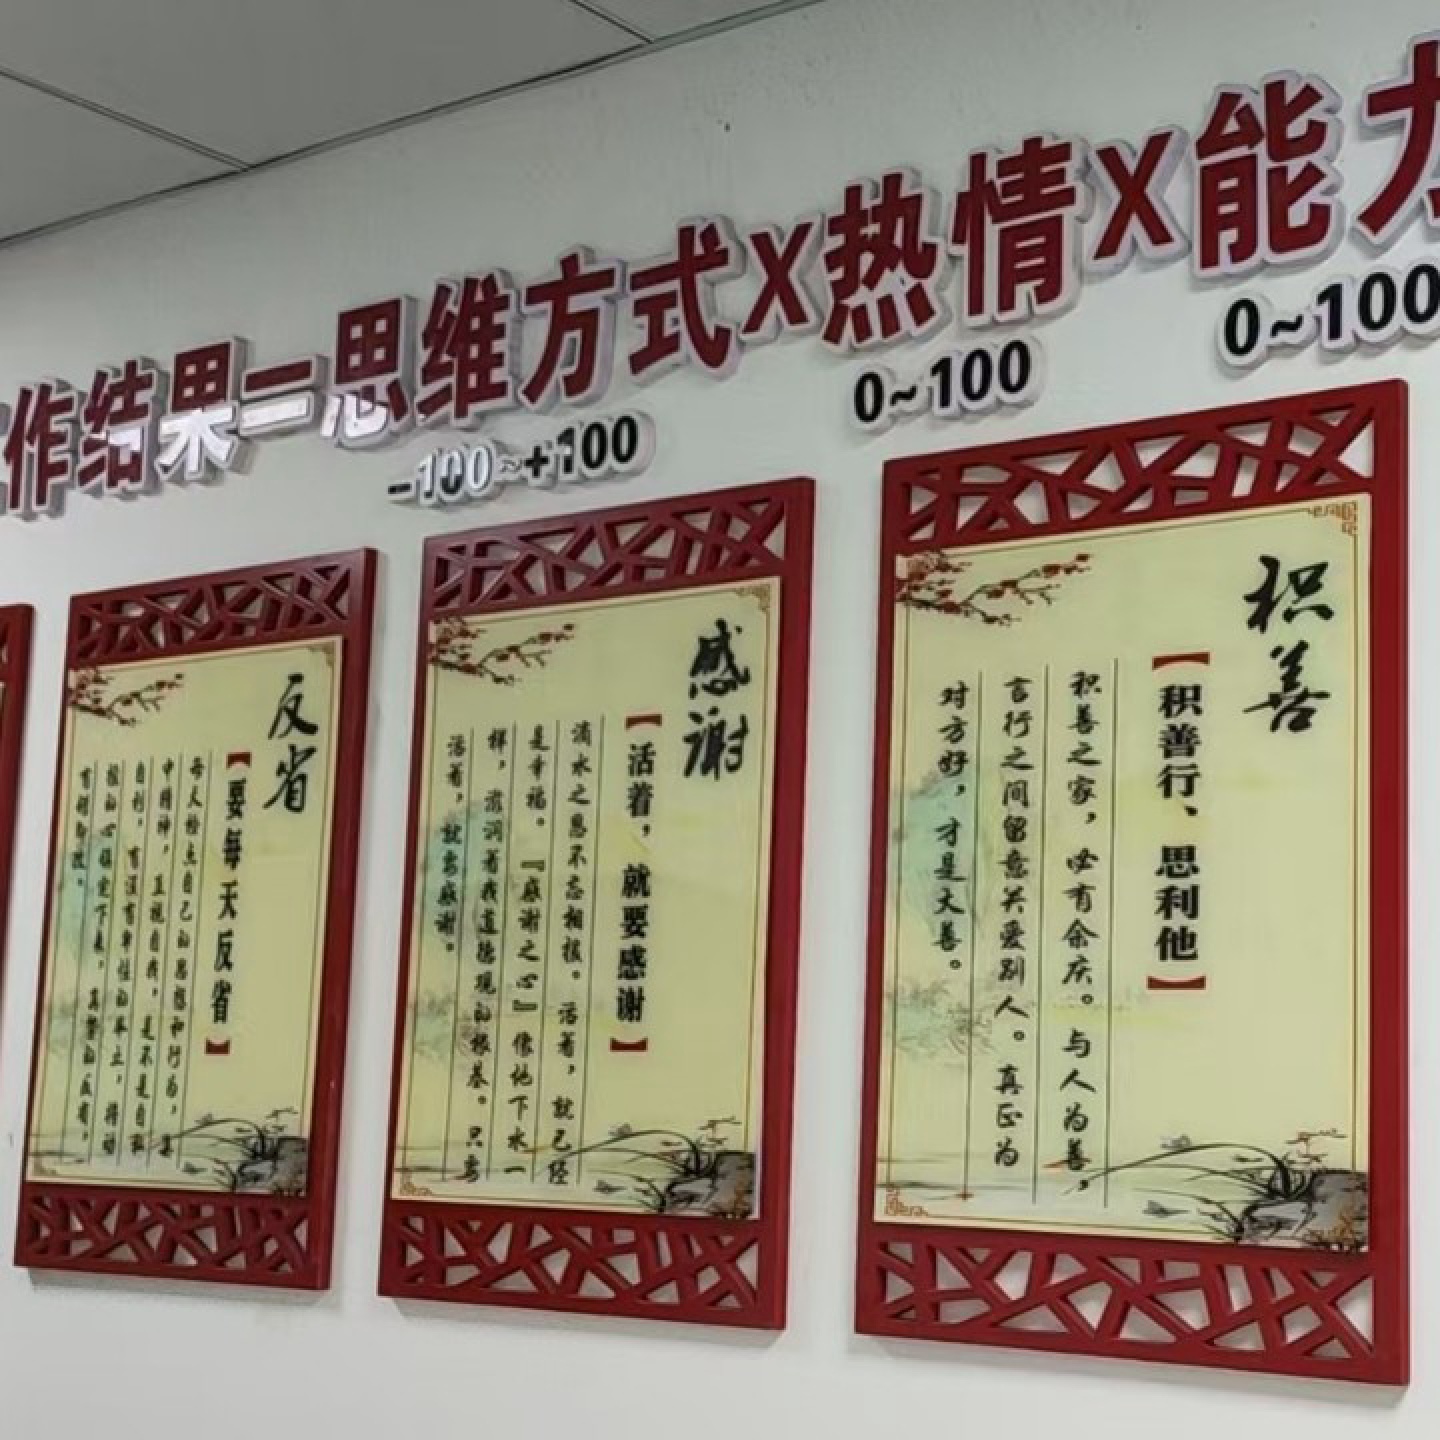 工作结果=思维方式X热情X能力
-100~+100
0~100
0~100
反省
【要每天反省】
每天检点自己的思想和行为，集
中精神，直视自我，是不是自私
自利，有没有卑怯的举止，将动
摇的心镇定下来，真挚的反省，
有错即改。
感谢
【活着，就要感谢】
滴水之恩不忘相报。活着，就已经
是幸福。『感谢之心』像地下水一
样，滋润着我道德观的根基。只要
活着，就要感谢。
积善
【积善行、思利他】
积善之家，必有余庆。与人为善，
言行之间留意关爱别人。真正为
对方好，才是大善。